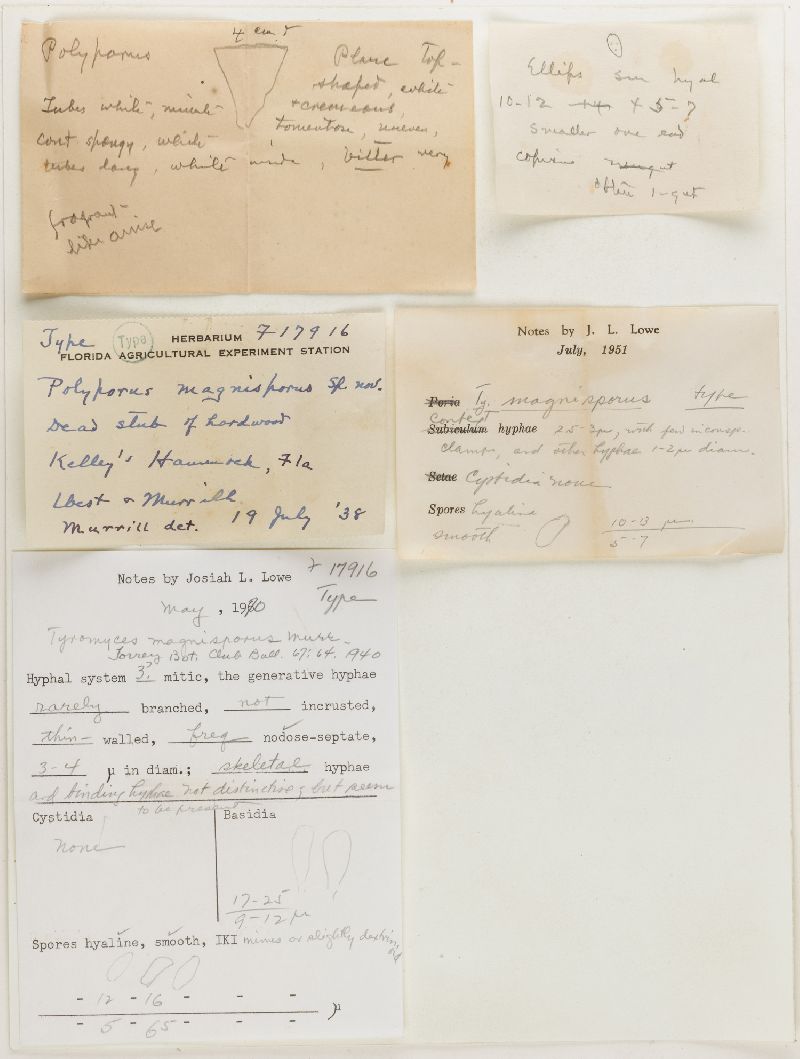 Polyporus
4 cm.
Plane top-
shaped, white
+ cremeous,
tomentose, uneven,
Tubes white, minute
cont spongy, white
tubes long, white inside, bitter very
fragrant
like anise
Ellips sm hyal
10-12 x 5-7
smaller one end
copious
often 1-gut
Type Type HERBARIUM F17916
FLORIDA AGRICULTURAL EXPERIMENT STATION
Polyporus magnisporus sp. nov.
Dead stub of hardwood
Kelley's Hammock, Fla
West & Murrill
Murrill det. 19 July '38
Notes by J. L. Lowe
July, 1951
Poria Ty. magnisporus type
Context
Subiculum hyphae 2.5-3µ, with few inconsp.
clamps, and other hyphae 1-2µ diam.
Setae Cystidia none
Spores hyaline
smooth
10-13 µ
5-7
Notes by Josiah L. Lowe F 17916
May, 1970 Type
Tyromyces magnisporus Murr.
Torrey Bot. Club Bull. 67:64. 1940
Hyphal system 3? mitic, the generative hyphae
rarely branched, not incrusted,
thin- walled, freq nodose-septate,
3-4 µ in diam.; skeletal hyphae
and binding hyphae not distinctive, but seem
to be present
Cystidia Basidia
none
17-25
9-12 µ
Spores hyaline, smooth, IKI minus or slightly dextrinoid
- 12 - 16 - - -
µ
- 5 - 6.5 - - -